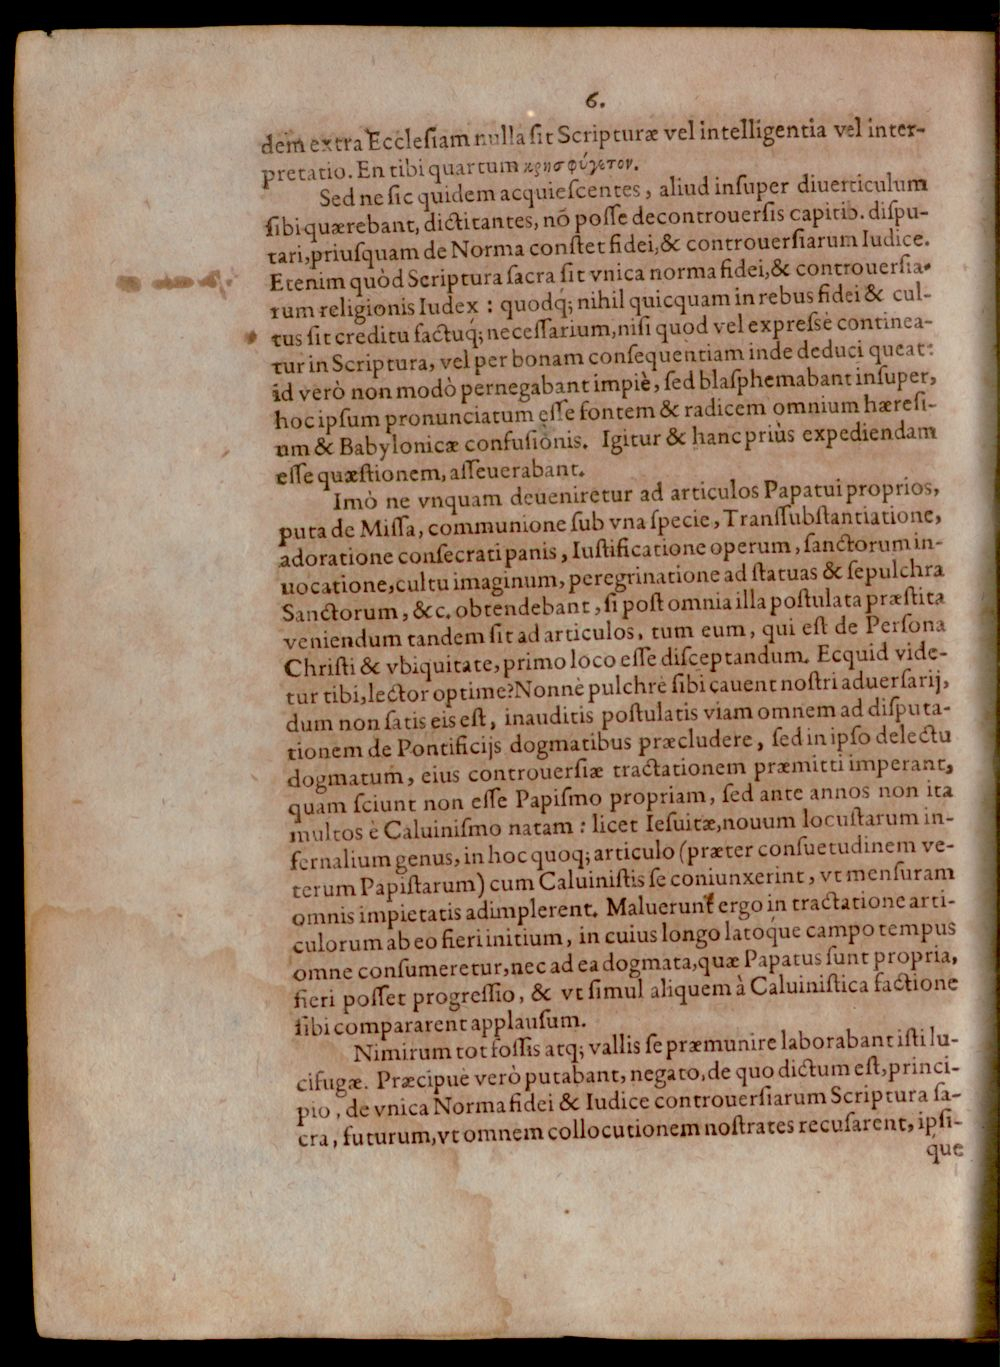 6.
dem extra Ecclesiam nulla ſit Scripturæ vel intelligentia vel inter-
pretatio. En tibi quartum κρησφύγετον.
Sed ne ſic quidem acquieſcentes, aliud inſuper diuerticulum
ſibi quærebant, dictitantes, nō poſſe de controuerſis capitib. diſpu-
tari, priusquam de Norma conſtet fidei, & controuerſiarum Iudice.
Etenim quòd Scriptura ſacra ſit vnica norma fidei, & controuerſia-
rum religionis Iudex : quodq́; nihil quicquam in rebus fidei & cul-
tus ſit creditu factuq́; neceſſarium, niſi quod vel expreſsè continea-
tur in Scriptura, vel per bonam conſequentiam inde deduci queat:
id verò non modò pernegabant impiè, ſed blaſphemabant inſuper,
hoc ipſum pronunciatum eſſe fontem & radicem omnium hæreſi-
um & Babylonicæ confuſionis. Igitur & hanc priùs expediendam
eſſe quæſtionem, aſſeuerabant.
Imò ne vnquam deueniretur ad articulos Papatui proprios,
puta de Miſſa, communione ſub vna ſpecie, Tranſſubſtantiatione,
adoratione conſecrati panis, Iuſtificatione operum, ſanctorum in-
uocatione, cultu imaginum, peregrinatione ad ſtatuas & ſepulchra
Sanctorum, &c. obtendebant, ſi poſt omnia illa poſtulata præſtita
veniendum tandem ſit ad articulos, tum eum, qui eſt de Perſona
Chriſti & vbiquitate, primo loco eſſe diſceptandum. Ecquid vide-
tur tibi, lector optime? Nonnè pulchrè ſibi cauent noſtri aduerſarij,
dum non ſatis eis eſt, inauditis poſtulatis viam omnem ad diſputa-
tionem de Pontificijs dogmatibus præcludere, ſed in ipſo delectu
dogmatum, eius controuerſiæ tractationem præmitti imperant,
quam ſciunt non eſſe Papiſmo propriam, ſed ante annos non ita
multos è Caluiniſmo natam : licet Ieſuitæ, nouum locuſtarum in-
fernalium genus, in hoc quoq; articulo (præter conſuetudinem ve-
terum Papiſtarum) cum Caluiniſtis ſe coniunxerint, vt menſuram
omnis impietatis adimplerent. Maluerunt ergo in tractatione arti-
culorum ab eo fieri initium, in cuius longo latoq́ue campo tempus
omne conſumeretur, nec ad ea dogmata, quæ Papatus ſunt propria,
fieri poſſet progreſſio, & vt ſimul aliquem à Caluiniſtica factione
ſibi compararent applauſum.
Nimirum tot foſſis atq; vallis ſe præmunire laborabant iſti lu-
cifugæ. Præcipuè verò putabant, negato, de quo dictum eſt, princi-
pio, de vnica Norma fidei & Iudice controuerſiarum Scriptura ſa-
cra, futurum, vt omnem collocutionem noſtrates recuſarent, ipſi-
q́ue